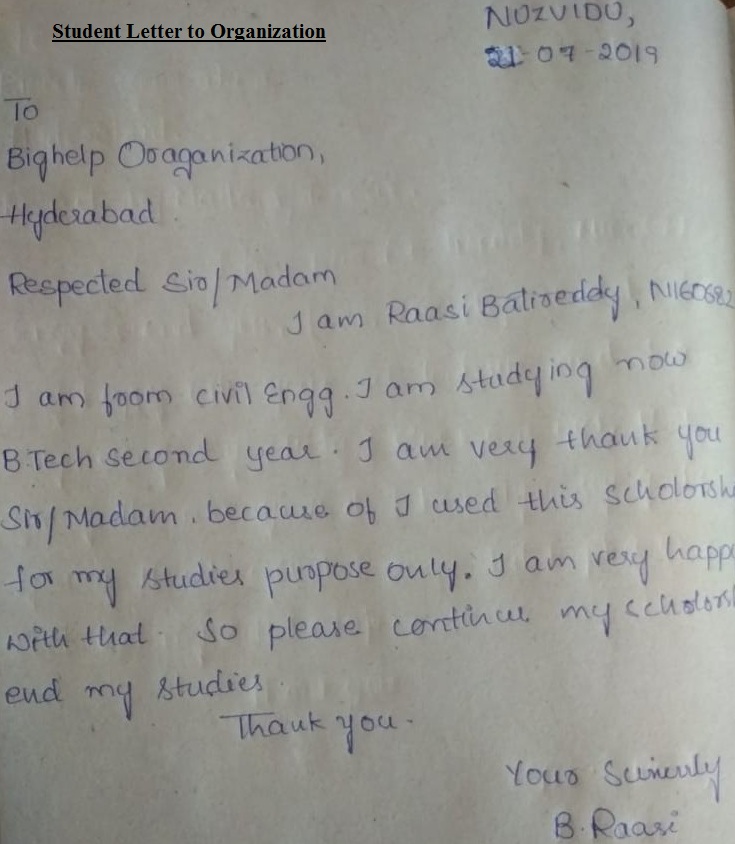 Student Letter to Organization
NUZVIDU,
21-07-2019
To
Bighelp Oraganization,
Hyderabad.
Respected Sir/Madam
I am Raasi Batireddy, N160682
I am from civil Engg. I am studying now
B.Tech second year. I am very thank you
Sir/Madam. because of I used this Scholorsh
for my studies purpose only. I am very happ
with that. So please continue my scholors
end my studies.
Thank you.
Your Scincerly
B.Raasi